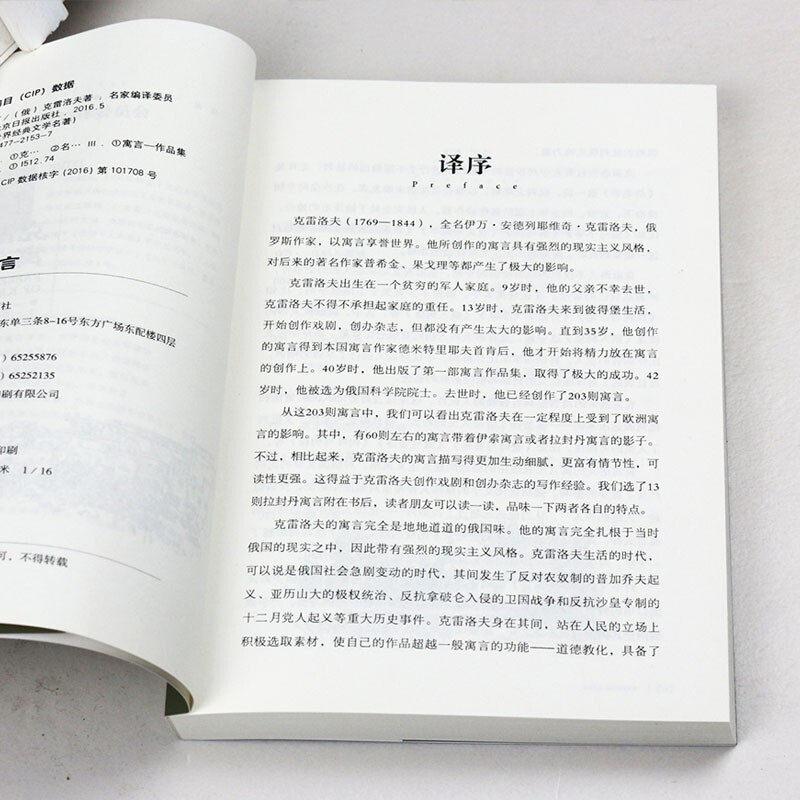 目 (CIP) 数据
(俄) 克雷洛夫著；名家编译委员
京日报出版社，2016.5
界经典文学名著)
477-2153-7
①克… ②名… Ⅲ. ①寓言—作品集
①I512.74
CIP 数据核字 (2016) 第 101708 号
言
社
东单三条8-16号东方广场东配楼四层
) 65255876
) 65252135
刷有限公司
印刷
米 1/16
可，不得转载
译序
Preface
克雷洛夫（1769—1844），全名伊万·安德列耶维奇·克雷洛夫，俄
罗斯作家，以寓言享誉世界。他所创作的寓言具有强烈的现实主义风格，
对后来的著名作家普希金、果戈理等都产生了极大的影响。
克雷洛夫出生在一个贫穷的军人家庭。9岁时，他的父亲不幸去世，
克雷洛夫不得不承担起家庭的重任。13岁时，克雷洛夫来到彼得堡生活，
开始创作戏剧，创办杂志，但都没有产生太大的影响。直到35岁，他创作
的寓言得到本国寓言作家德米特里耶夫首肯后，他才开始将精力放在寓言
的创作上。40岁时，他出版了第一部寓言作品集，取得了极大的成功。42
岁时，他被选为俄国科学院院士。去世时，他已经创作了203则寓言。
从这203则寓言中，我们可以看出克雷洛夫在一定程度上受到了欧洲寓
言的影响。其中，有60则左右的寓言带着伊索寓言或者拉封丹寓言的影子。
不过，相比起来，克雷洛夫的寓言描写得更加生动细腻，更富有情节性，可
读性更强。这得益于克雷洛夫创作戏剧和创办杂志的写作经验。我们选了13
则拉封丹寓言附在书后，读者朋友可以读一读，品味一下两者各自的特点。
克雷洛夫的寓言完全是地地道道的俄国味。他的寓言完全扎根于当时
俄国的现实之中，因此带有强烈的现实主义风格。克雷洛夫生活的时代，
可以说是俄国社会急剧变动的时代，其间发生了反对农奴制的普加乔夫起
义、亚历山大的极权统治、反抗拿破仑入侵的卫国战争和反抗沙皇专制的
十二月党人起义等重大历史事件。克雷洛夫身在其间，站在人民的立场上
积极选取素材，使自己的作品超越一般寓言的功能——道德教化，具备了